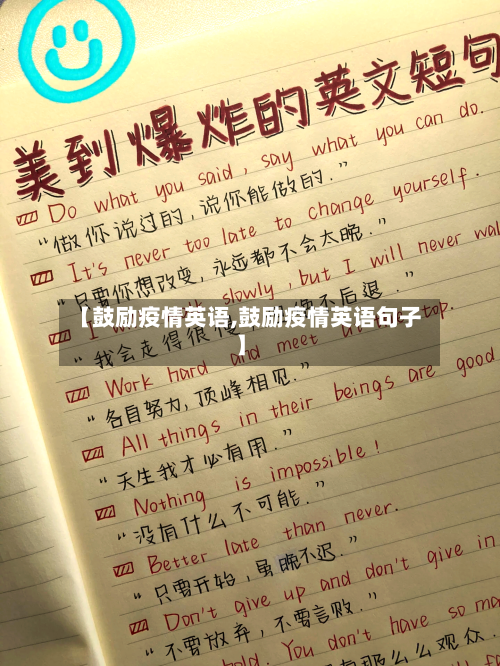 美到爆炸的英文短句
Do what you said, say what you can do.
“做你说过的,说你能做的.”
It's never too late to change yourself.
“只要你想改变,永远都不会太晚.”
slowly, but I will never
“我会走得很慢 不后退.”
【鼓励疫情英语,鼓励疫情英语句子
】
Work hard and meet
“各自努力,顶峰相见.”
All things in their beings are good
“天生我才必有用.”
Nothing is impossible!
“没有什么不可能.”
Better late than never.
“只要开始,虽晚不迟.”
Don't give up and don't give in
“不要放弃,不要言败.”
hold. You don't have so
那么么观众.